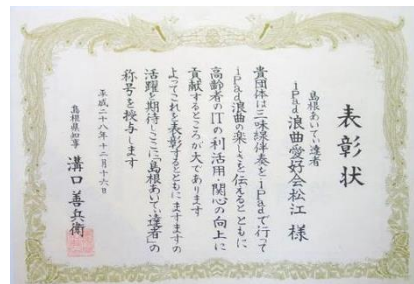 表彰状
島根あいてぃ達者
iPad浪曲愛好会松江 様
貴団体は三味線伴奏をiPadで行って
iPad浪曲の楽しさを伝えるとともに
高齢者のITの利活用・関心の向上に
貢献するところが大であります
よってこれを表彰するとともにますますの
活躍を期待しここに「島根あいてぃ達者」の
称号を授与します
平成二十八年十二月十六日
島根県知事 溝口善兵衛